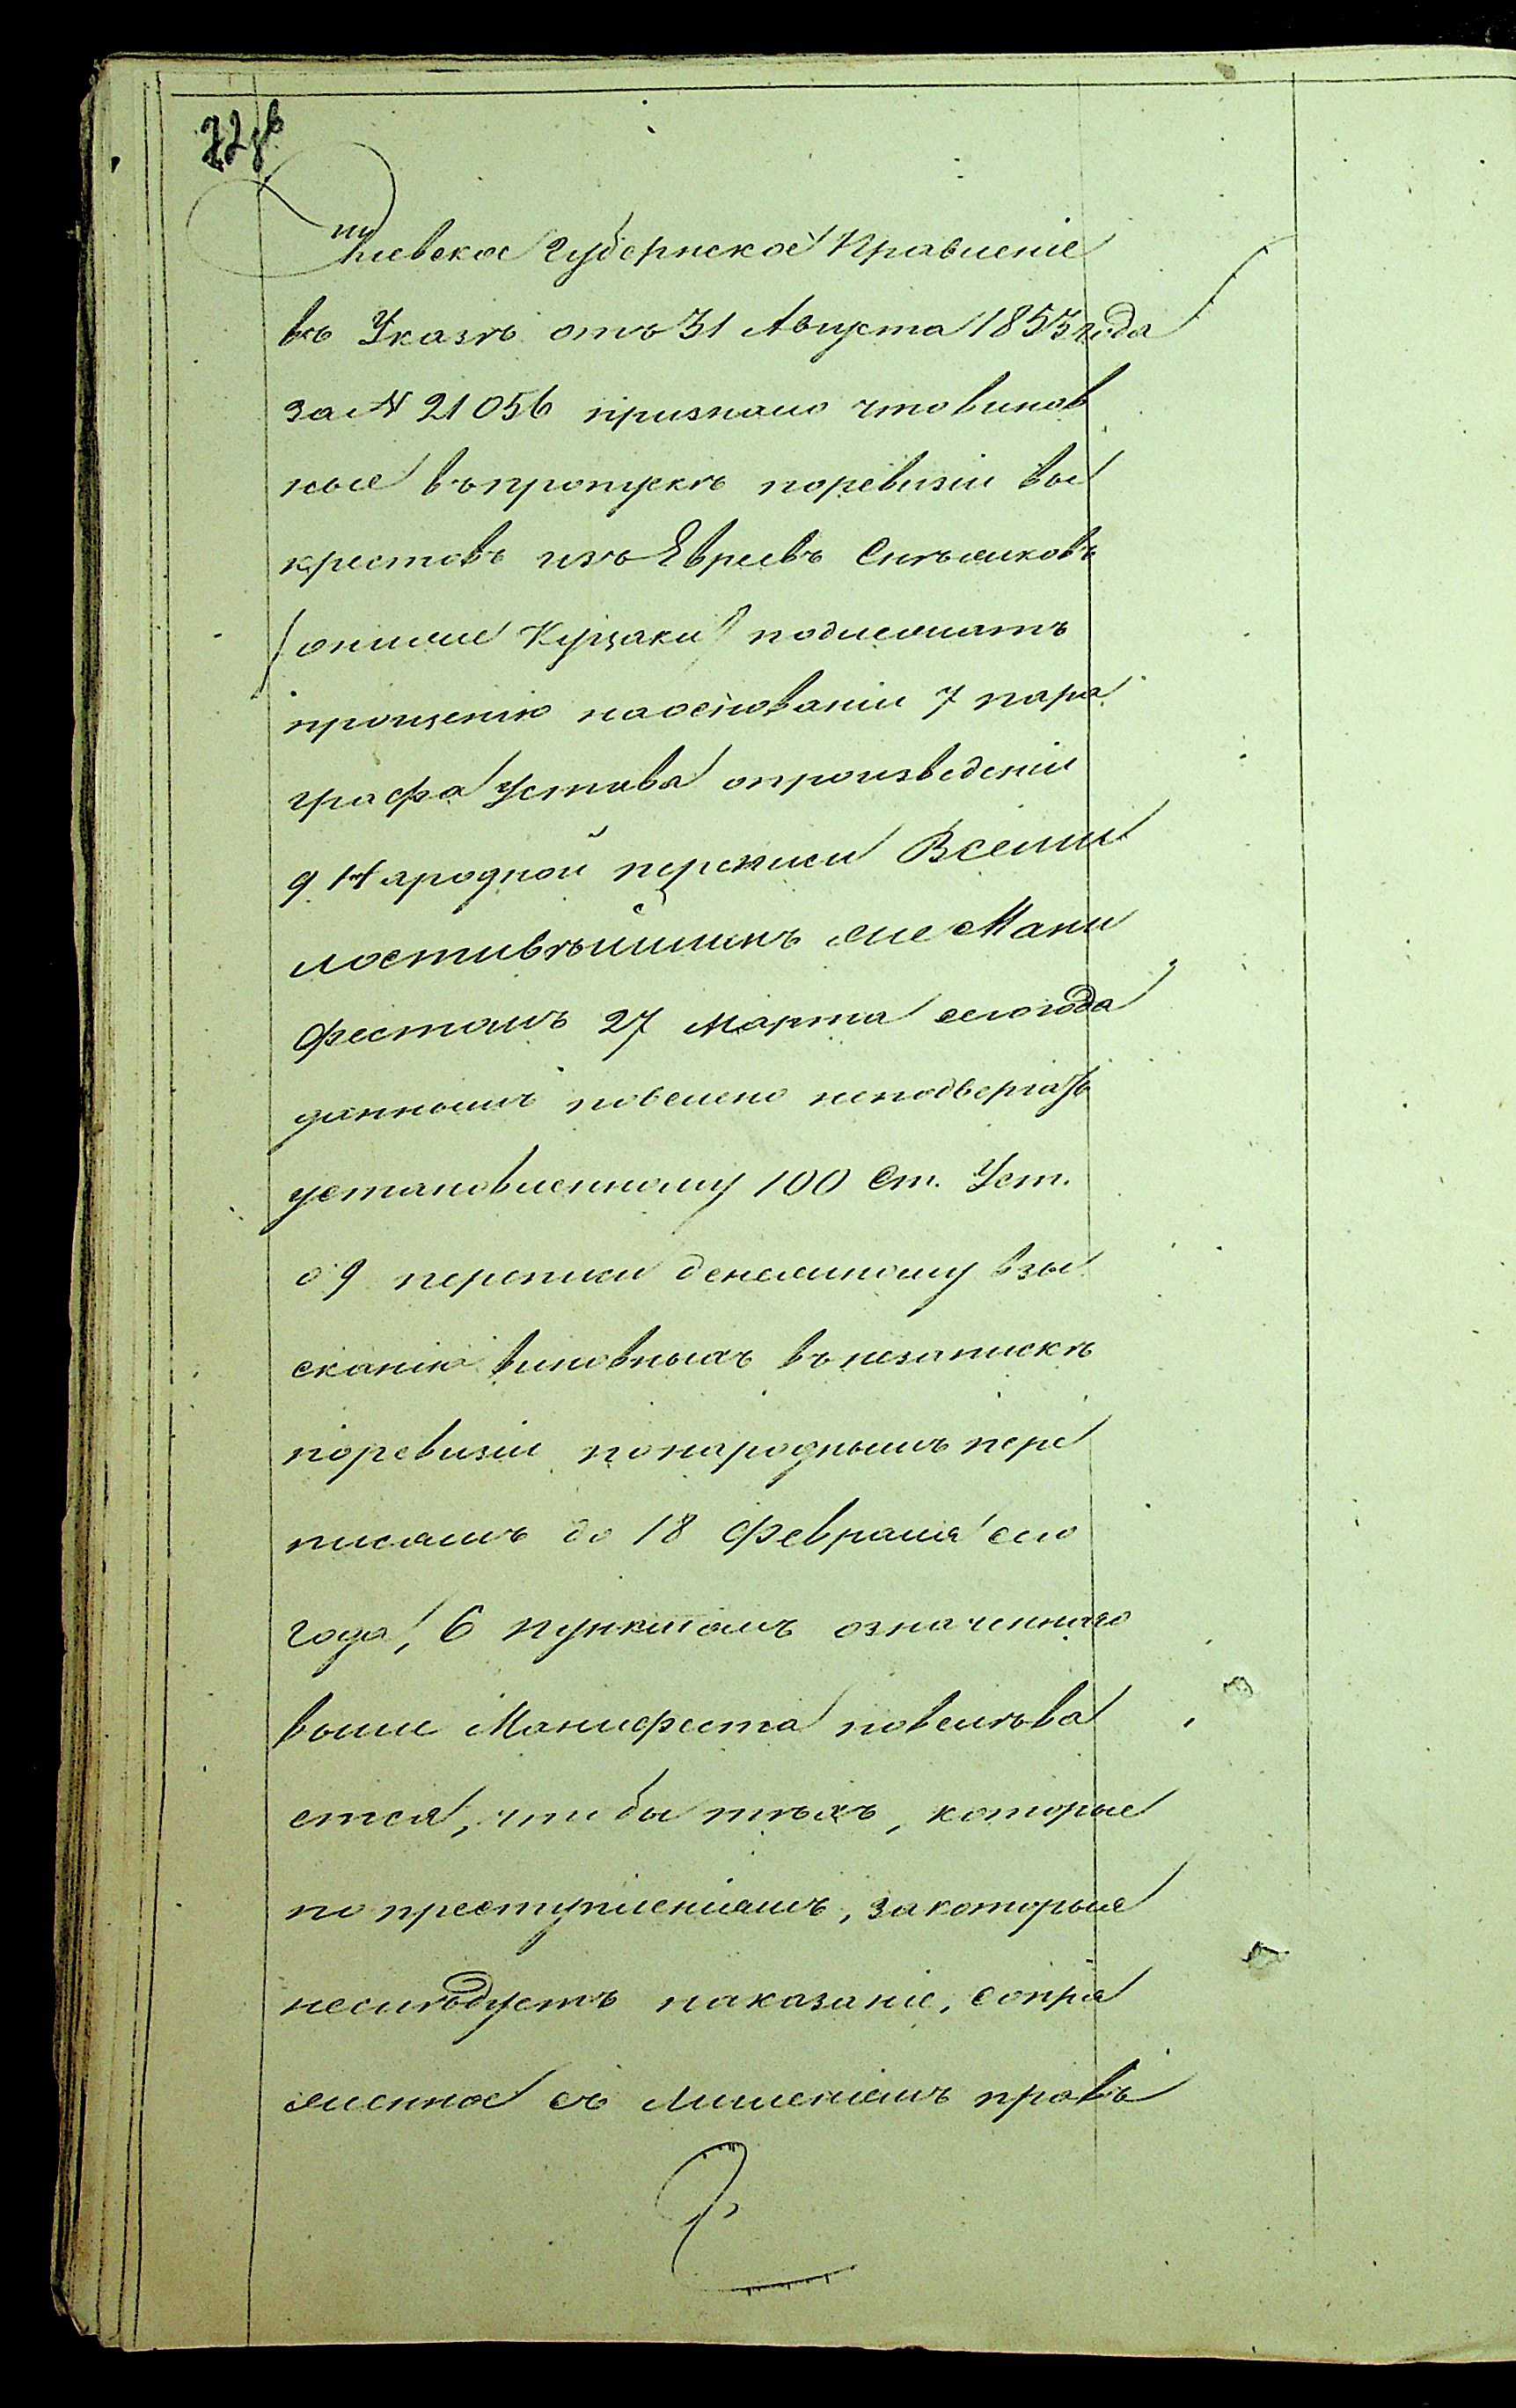 72 зв
Киевское Губернское Правленіе
въ Указѣ отъ 31 Августа 1853 года
за № 21056 признало что винов
ные въ пропускѣ поревизіи вы
крестовъ изъ Евреевъ
(ониже Куцаки) подлежатъ
прощенію наоснованіи 7 пара
графа Устава опроизведеніи
9 Народной переписи Всеми
лостивѣйшимъ же Мани
фестомъ 27 Марта сегогода
даннымъ повелено неподвергать
установленному 100 Ст. Уст.
о 9 переписи денежному взы
сканію виновныхъ въ незапискѣ
поревизіи понароднымъ пере
писямъ до 18 Февраля сего
года, 6 пунктомъ означеннаго
выше Манифеста повелѣва
ется, чтобы тѣхъ, которые
по преступленіямъ, закоторые
неслѣдуетъ наказаніе, сопря
женное съ лишеніемъ правъ